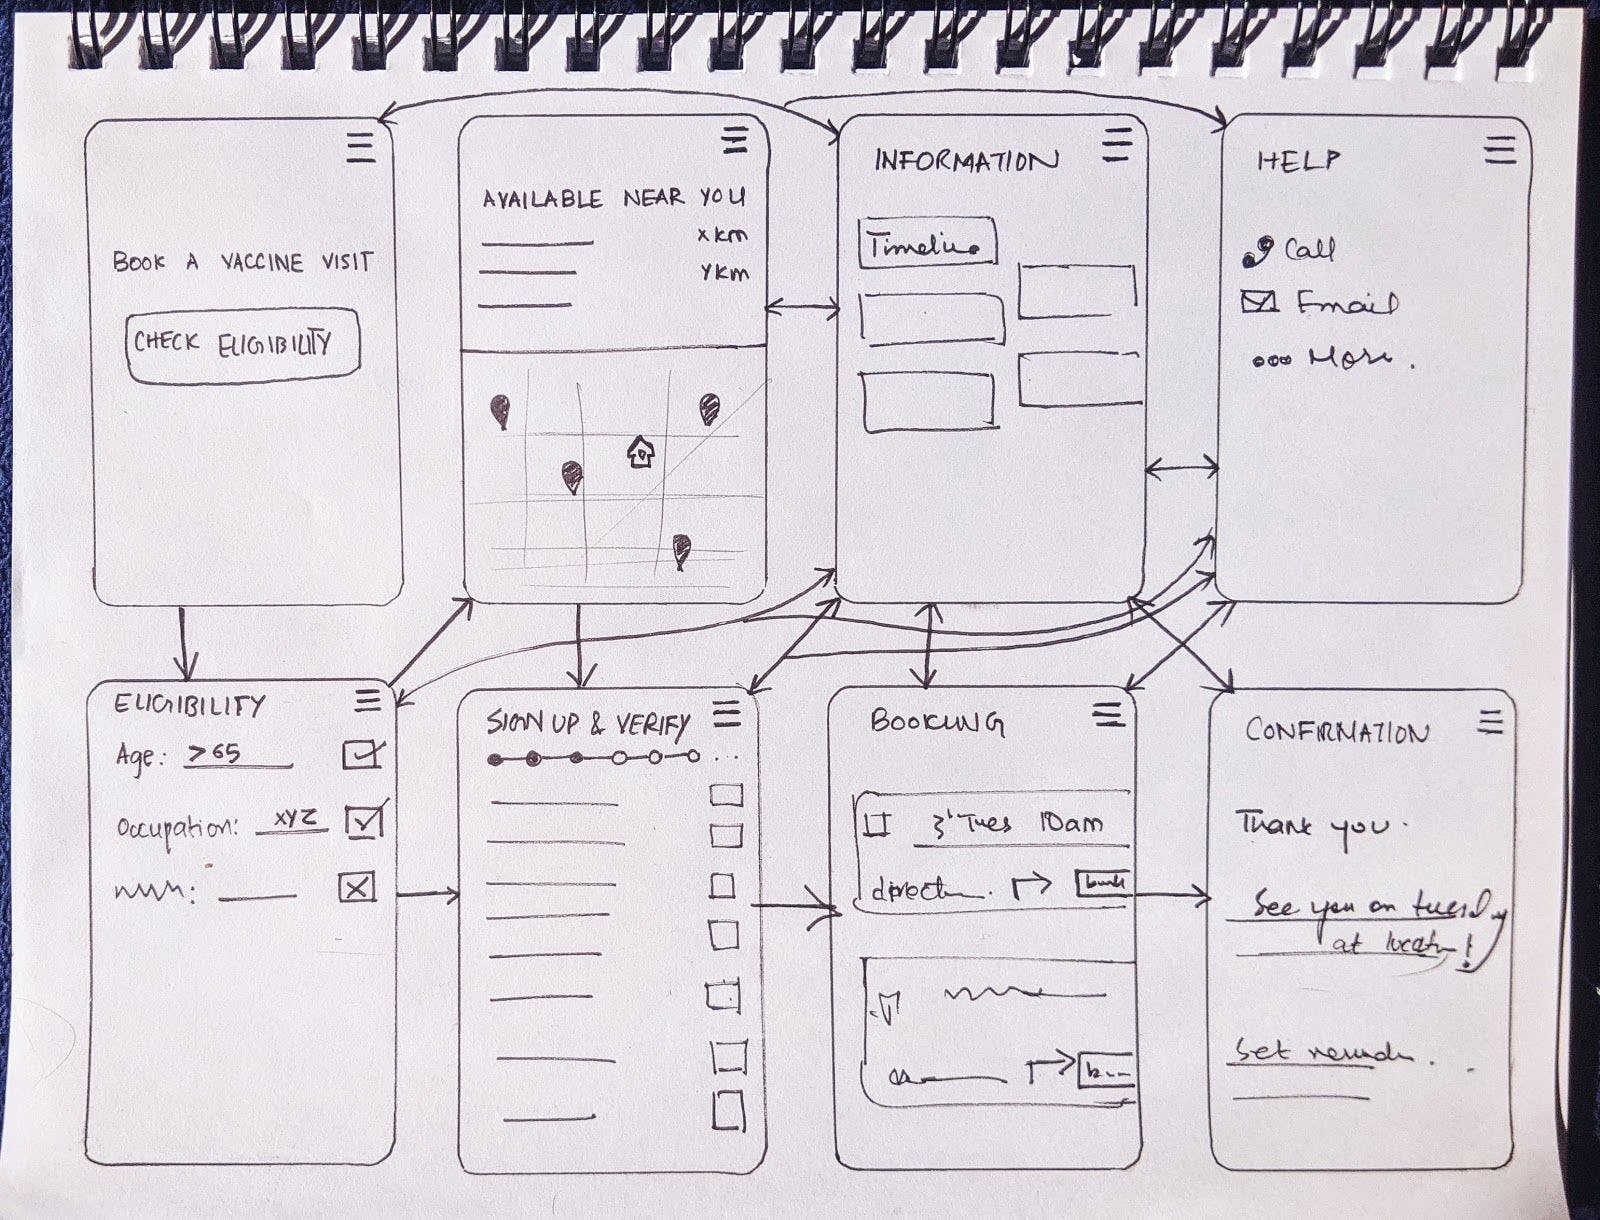 BOOK A VACCINE VISIT
CHECK ELIGIBILITY
AVAILABLE NEAR YOU
x km
y km
INFORMATION
Timeline
HELP
Call
Email
More.
ELIGIBILITY
Age: >65
Occupation: XYZ
SIGN UP & VERIFY
...
BOOKING
Tues 10am
CONFIRMATION
Thank you.
See you on
at
!
Set